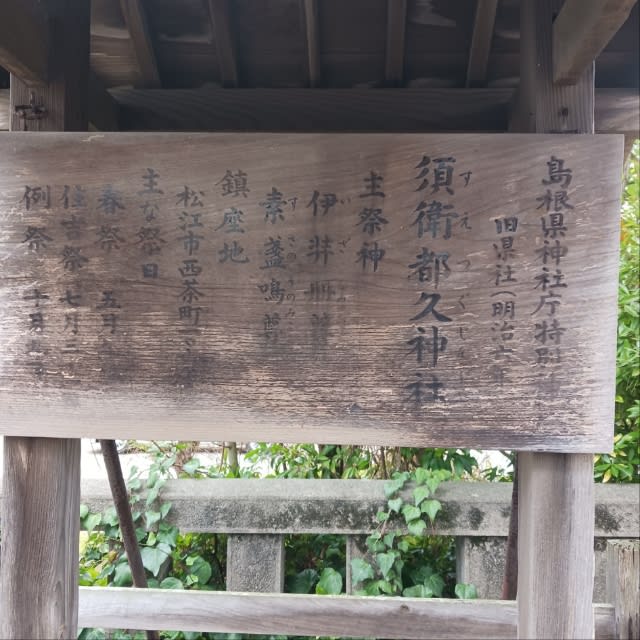 島根県神社庁特別
旧県社(明治
すえつくじ
須衛都久神社
主祭神
いざ
伊弉冊尊
すさのおのみ
素盞嗚尊
鎮座地
松江市西茶町
主な祭日
春祭 五月
住吉祭 七月二
例祭 十月